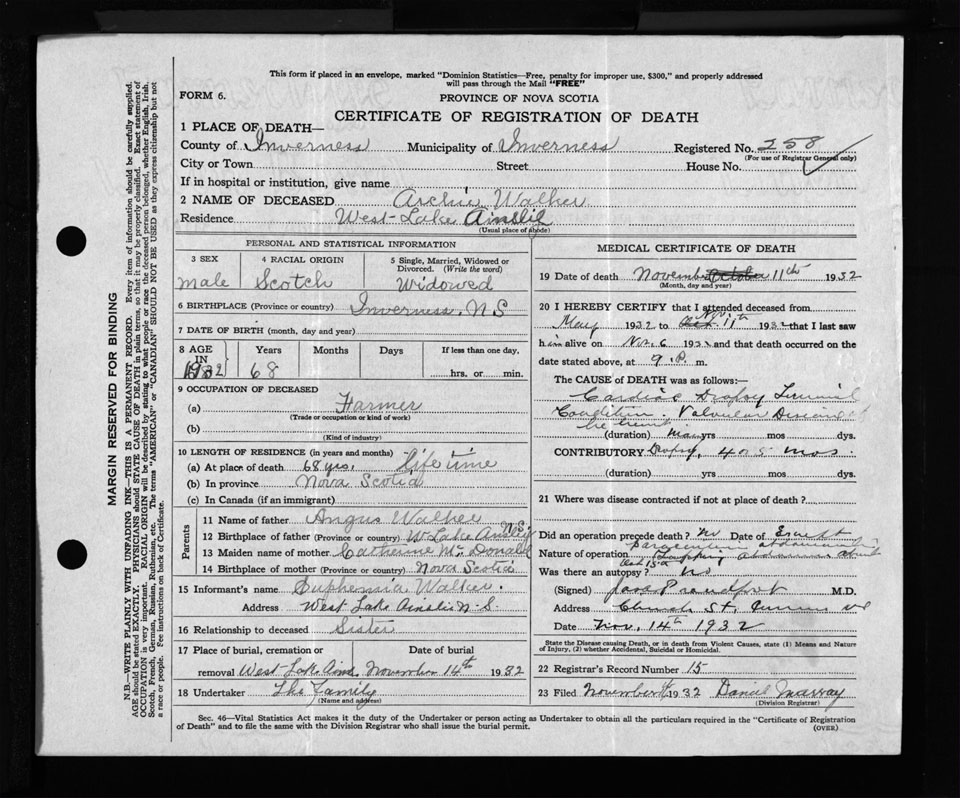 This form if placed in an envelope, marked "Dominion Statistics—Free, penalty for improper use, $300," and properly addressed
will pass through the Mail "FREE"
FORM 6.
PROVINCE OF NOVA SCOTIA
CERTIFICATE OF REGISTRATION OF DEATH
1 PLACE OF DEATH—
County of Inverness Municipality of Inverness Registered No. 258
(For use of Registrar General only)
City or Town Street House No.
If in hospital or institution, give name
2 NAME OF DECEASED Archie Walker
Residence West Lake Ainslie
(Usual place of abode)
PERSONAL AND STATISTICAL INFORMATION
3 SEX 4 RACIAL ORIGIN 5 Single, Married, Widowed or
Divorced. (Write the word)
male Scotch Widowed
6 BIRTHPLACE (Province or country) Inverness. N.S
7 DATE OF BIRTH (month, day and year)
8 AGE IN Years Months Days If less than one day,
1932 68 hrs. or min.
9 OCCUPATION OF DECEASED
(a) Farmer
(Trade or occupation or kind of work)
(b)
(Kind of industry)
10 LENGTH OF RESIDENCE (in years and months)
(a) At place of death 68 yrs. life time
(b) In province Nova Scotia
(c) In Canada (if an immigrant)
Parents
11 Name of father Angus Walker
12 Birthplace of father (Province or country) W. Lake Ainslie N.S.
13 Maiden name of mother Catherine Mc Donald
14 Birthplace of mother (Province or country) Nova Scotia
15 Informant's name Euphemia Walker.
Address West Lake Ainslie N.S.
16 Relationship to deceased Sister
17 Place of burial, cremation or Date of burial
removal West Lake Ains. November 14th 1932
18 Undertaker The Family
(Name and address)
MEDICAL CERTIFICATE OF DEATH
19 Date of death November October 11th 1932
(Month, day and year)
20 I HEREBY CERTIFY that I attended deceased from
May 1932 to Nov 11th 1932 that I last saw
him alive on Nov. 6 1932 and that death occurred on the
date stated above, at 9 P. m.
The CAUSE OF DEATH was as follows:—
Cardiac Dropsy Terminal
Condition. Valvular Disease of
(duration) yrs mos dys.
CONTRIBUTORY Dropsy, 4 or 5 mos.
(duration) yrs mos dys.
21 Where was disease contracted if not at place of death?
Did an operation precede death? No Date of
Nature of operation tapping abdomen about
Oct 15th
Was there an autopsy? No
(Signed) M.D.
Address Church St.
Date Nov. 14th 1932
State the Disease causing Death, or in death from Violent Causes, state (1) Means and Nature
of Injury, (2) whether Accidental, Suicidal or Homicidal.
22 Registrar's Record Number 15
23 Filed November 1932 Daniel Murray
(Division Registrar)
Sec. 46—Vital Statistics Act makes it the duty of the Undertaker or person acting as Undertaker to obtain all the particulars required in the "Certificate of Registration
of Death" and to file the same with the Division Registrar who shall issue the burial permit.
(OVER)
MARGIN RESERVED FOR BINDING
N.B.—WRITE PLAINLY WITH UNFADING INK—THIS IS A PERMANENT RECORD. Every item of information should be carefully supplied.
AGE should be stated EXACTLY. PHYSICIANS should STATE CAUSE OF DEATH in plain terms, so that it may be properly classified. Exact statement of
OCCUPATION is very important. RACIAL ORIGIN will be described by stating to what people or race the deceased person belonged, whether English, Irish,
Scotch, French, German, Russian, Ruthenian, etc. The terms "AMERICAN" or "CANADIAN" SHOULD NOT BE USED as they express citizenship but not
a race or people. Fee instructions on back of Certificate.